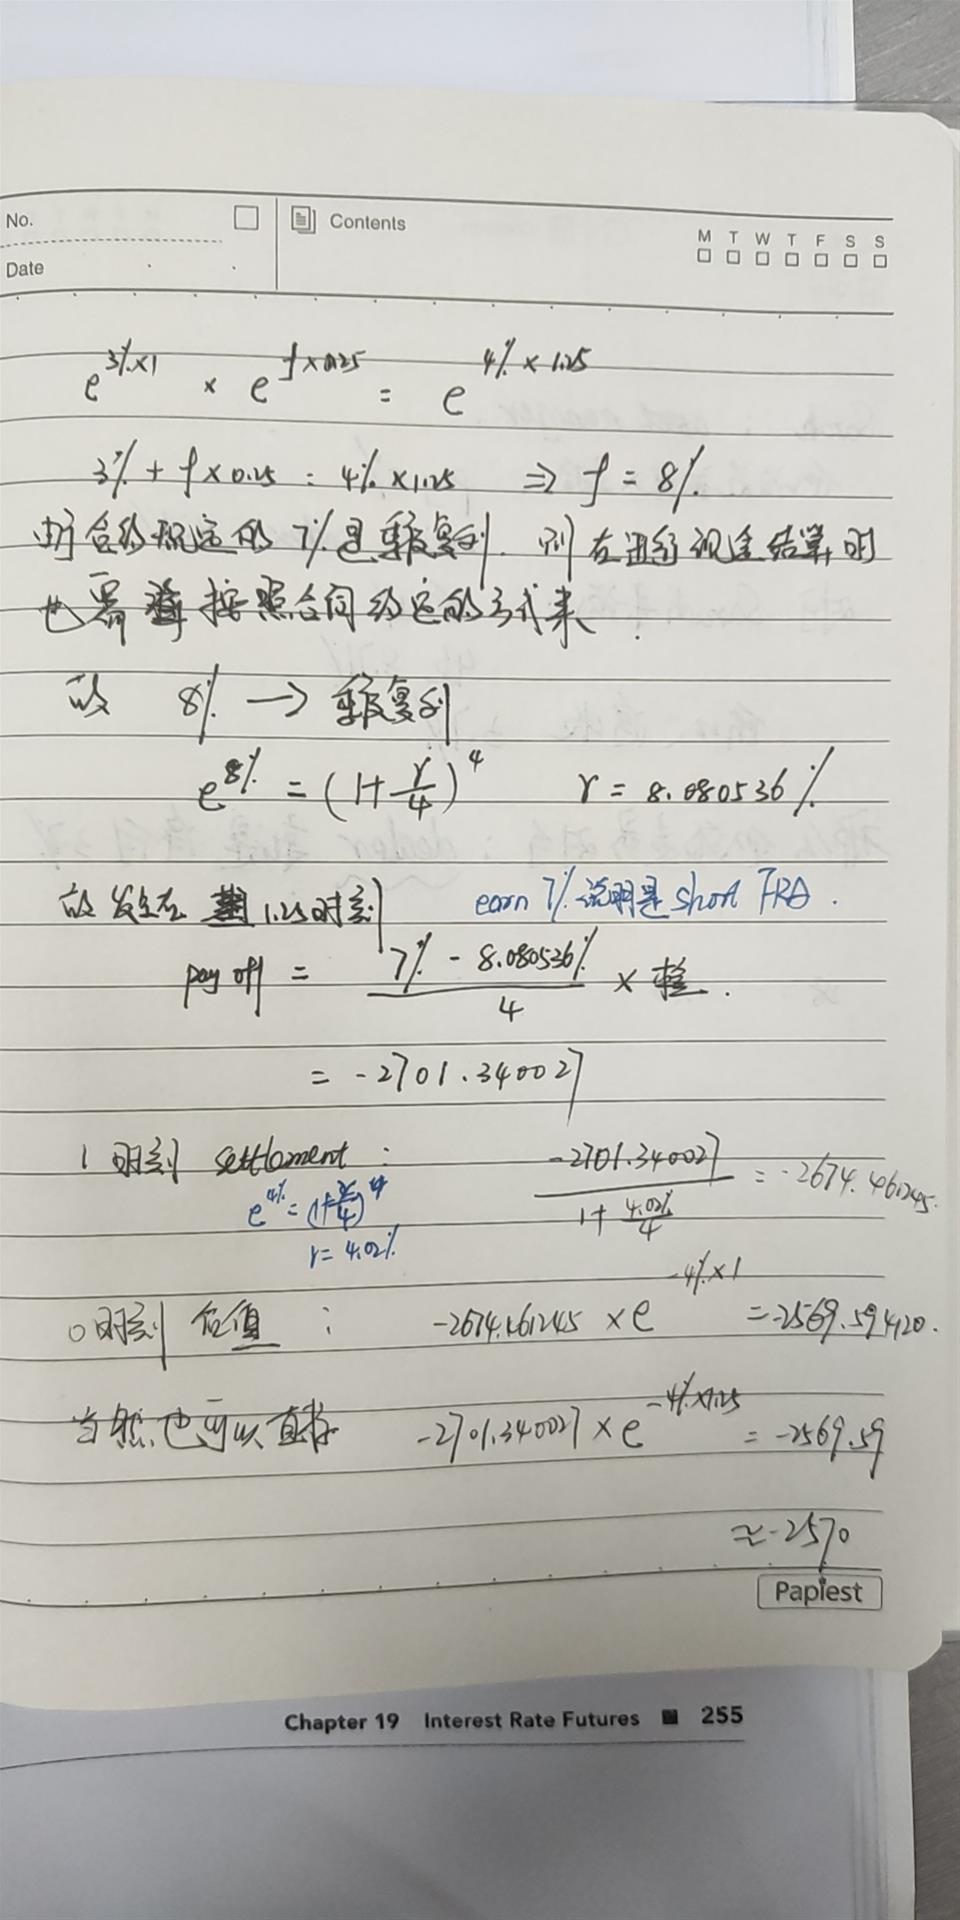 No.
Contents
M T W T F S S
Date
e^{3%×1} × e^{f×0.25} = e^{4%×1.25}
3% + f×0.25 = 4%×1.25 ⇒ f = 8%
由于合约规定的7%是季度复利,则在进行现金结算时
也需要按照合同约定的方式来.
故 8% → 季度复利
e^{8%} = (1+r/4)^4 r = 8.080536%
故发生在1.25时刻 earn 7%说明是short FRA.
pay off = (7% - 8.080536%)/4 ×
= -2701.340027
1时刻 settlement: -2701.340027/(1+4.02%/4) = -2674.461245.
e^{4%} = (1+r/4)^4
r = 4.02%
0时刻价值: -2674.461245 × e^{-4%×1} = -2569.594120.
当然也可以直接 -2701.340027 × e^{-4%×1.25} = -2569.59
≈ -2570
Papiest
Chapter 19 Interest Rate Futures 255